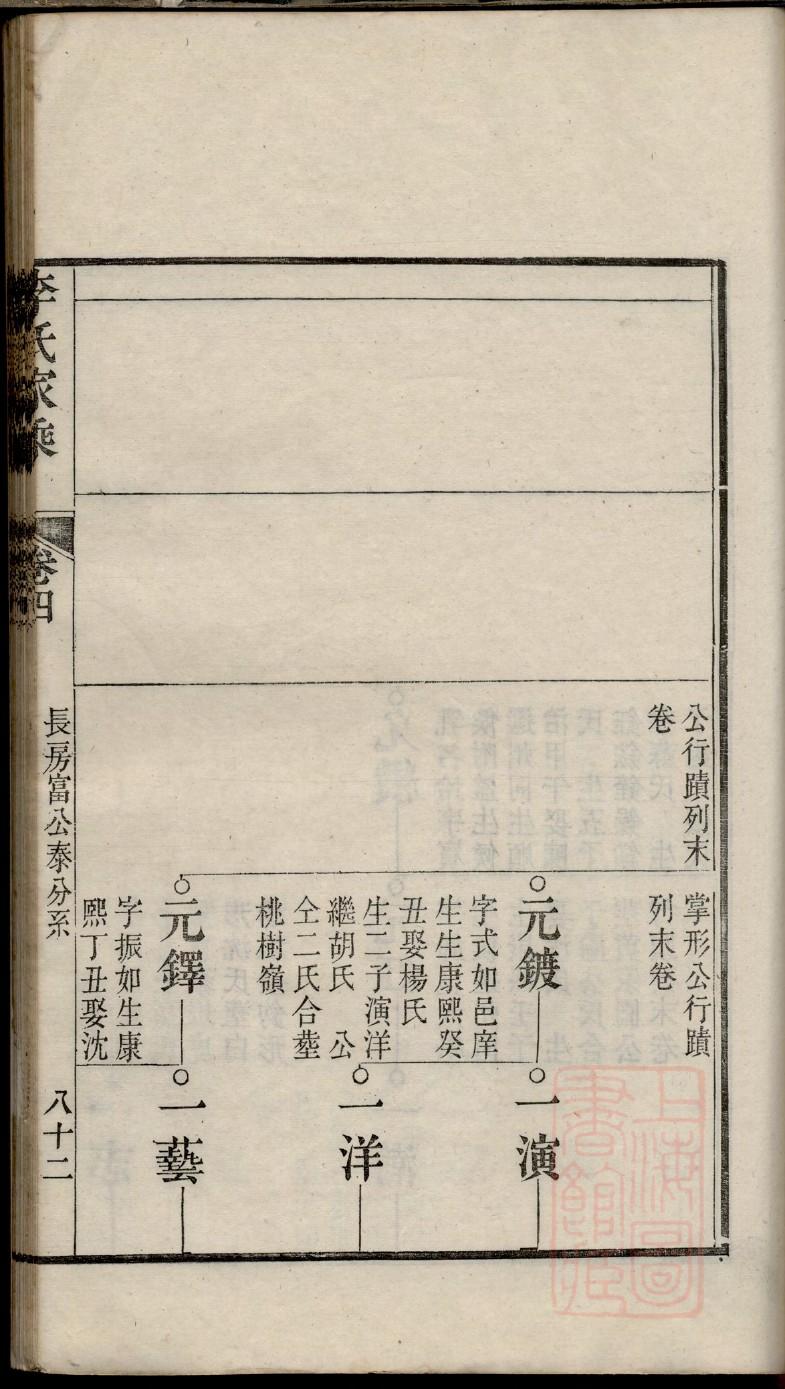 公行蹟列末
卷
掌形公行蹟
列末卷
元鍍
字式如邑庠
生生康熙癸
丑娶楊氏
生二子演洋
繼胡氏　公
仝二氏合塟
桃樹嶺
元鐸
字振如生康
熙丁丑娶沈
一演
一洋
一藝
李氏家乘
卷四
長房富公泰分系
八十二
上海圖
書館藏